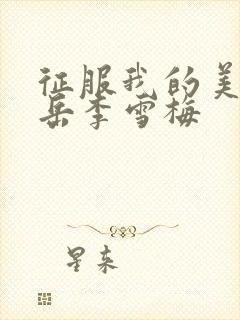 征服我的美
岳李雪梅
星来